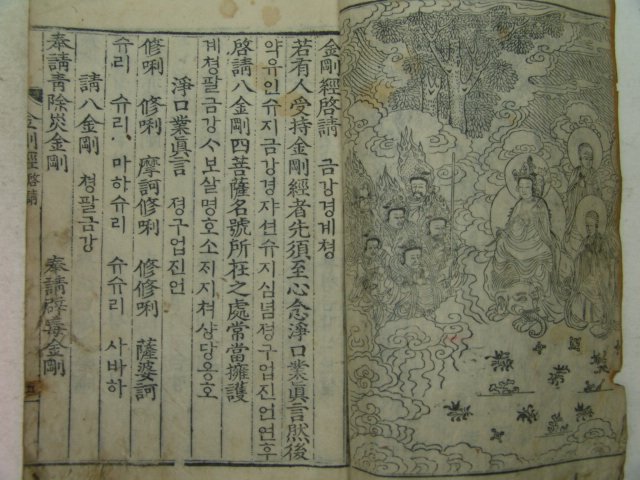 金剛經啓請 금강경계쳥
若有人受持金剛經者先須至心念淨口業眞言然後
약유인슈지금강경쟈션슈지심념졍구업진언연후
啓請八金剛四菩薩名號所在之處常當擁護
계쳥팔금강ᄉ보살명호소ᄌᆡ지쳐샹당옹호
淨口業眞言 졍구업진언
修唎 修唎 摩訶修唎 修修唎 薩婆訶
슈리 슈리 마하슈리 슈슈리 사바하
請八金剛 쳥팔금강
奉請靑除災金剛 奉請辟毒金剛
金剛經啓請